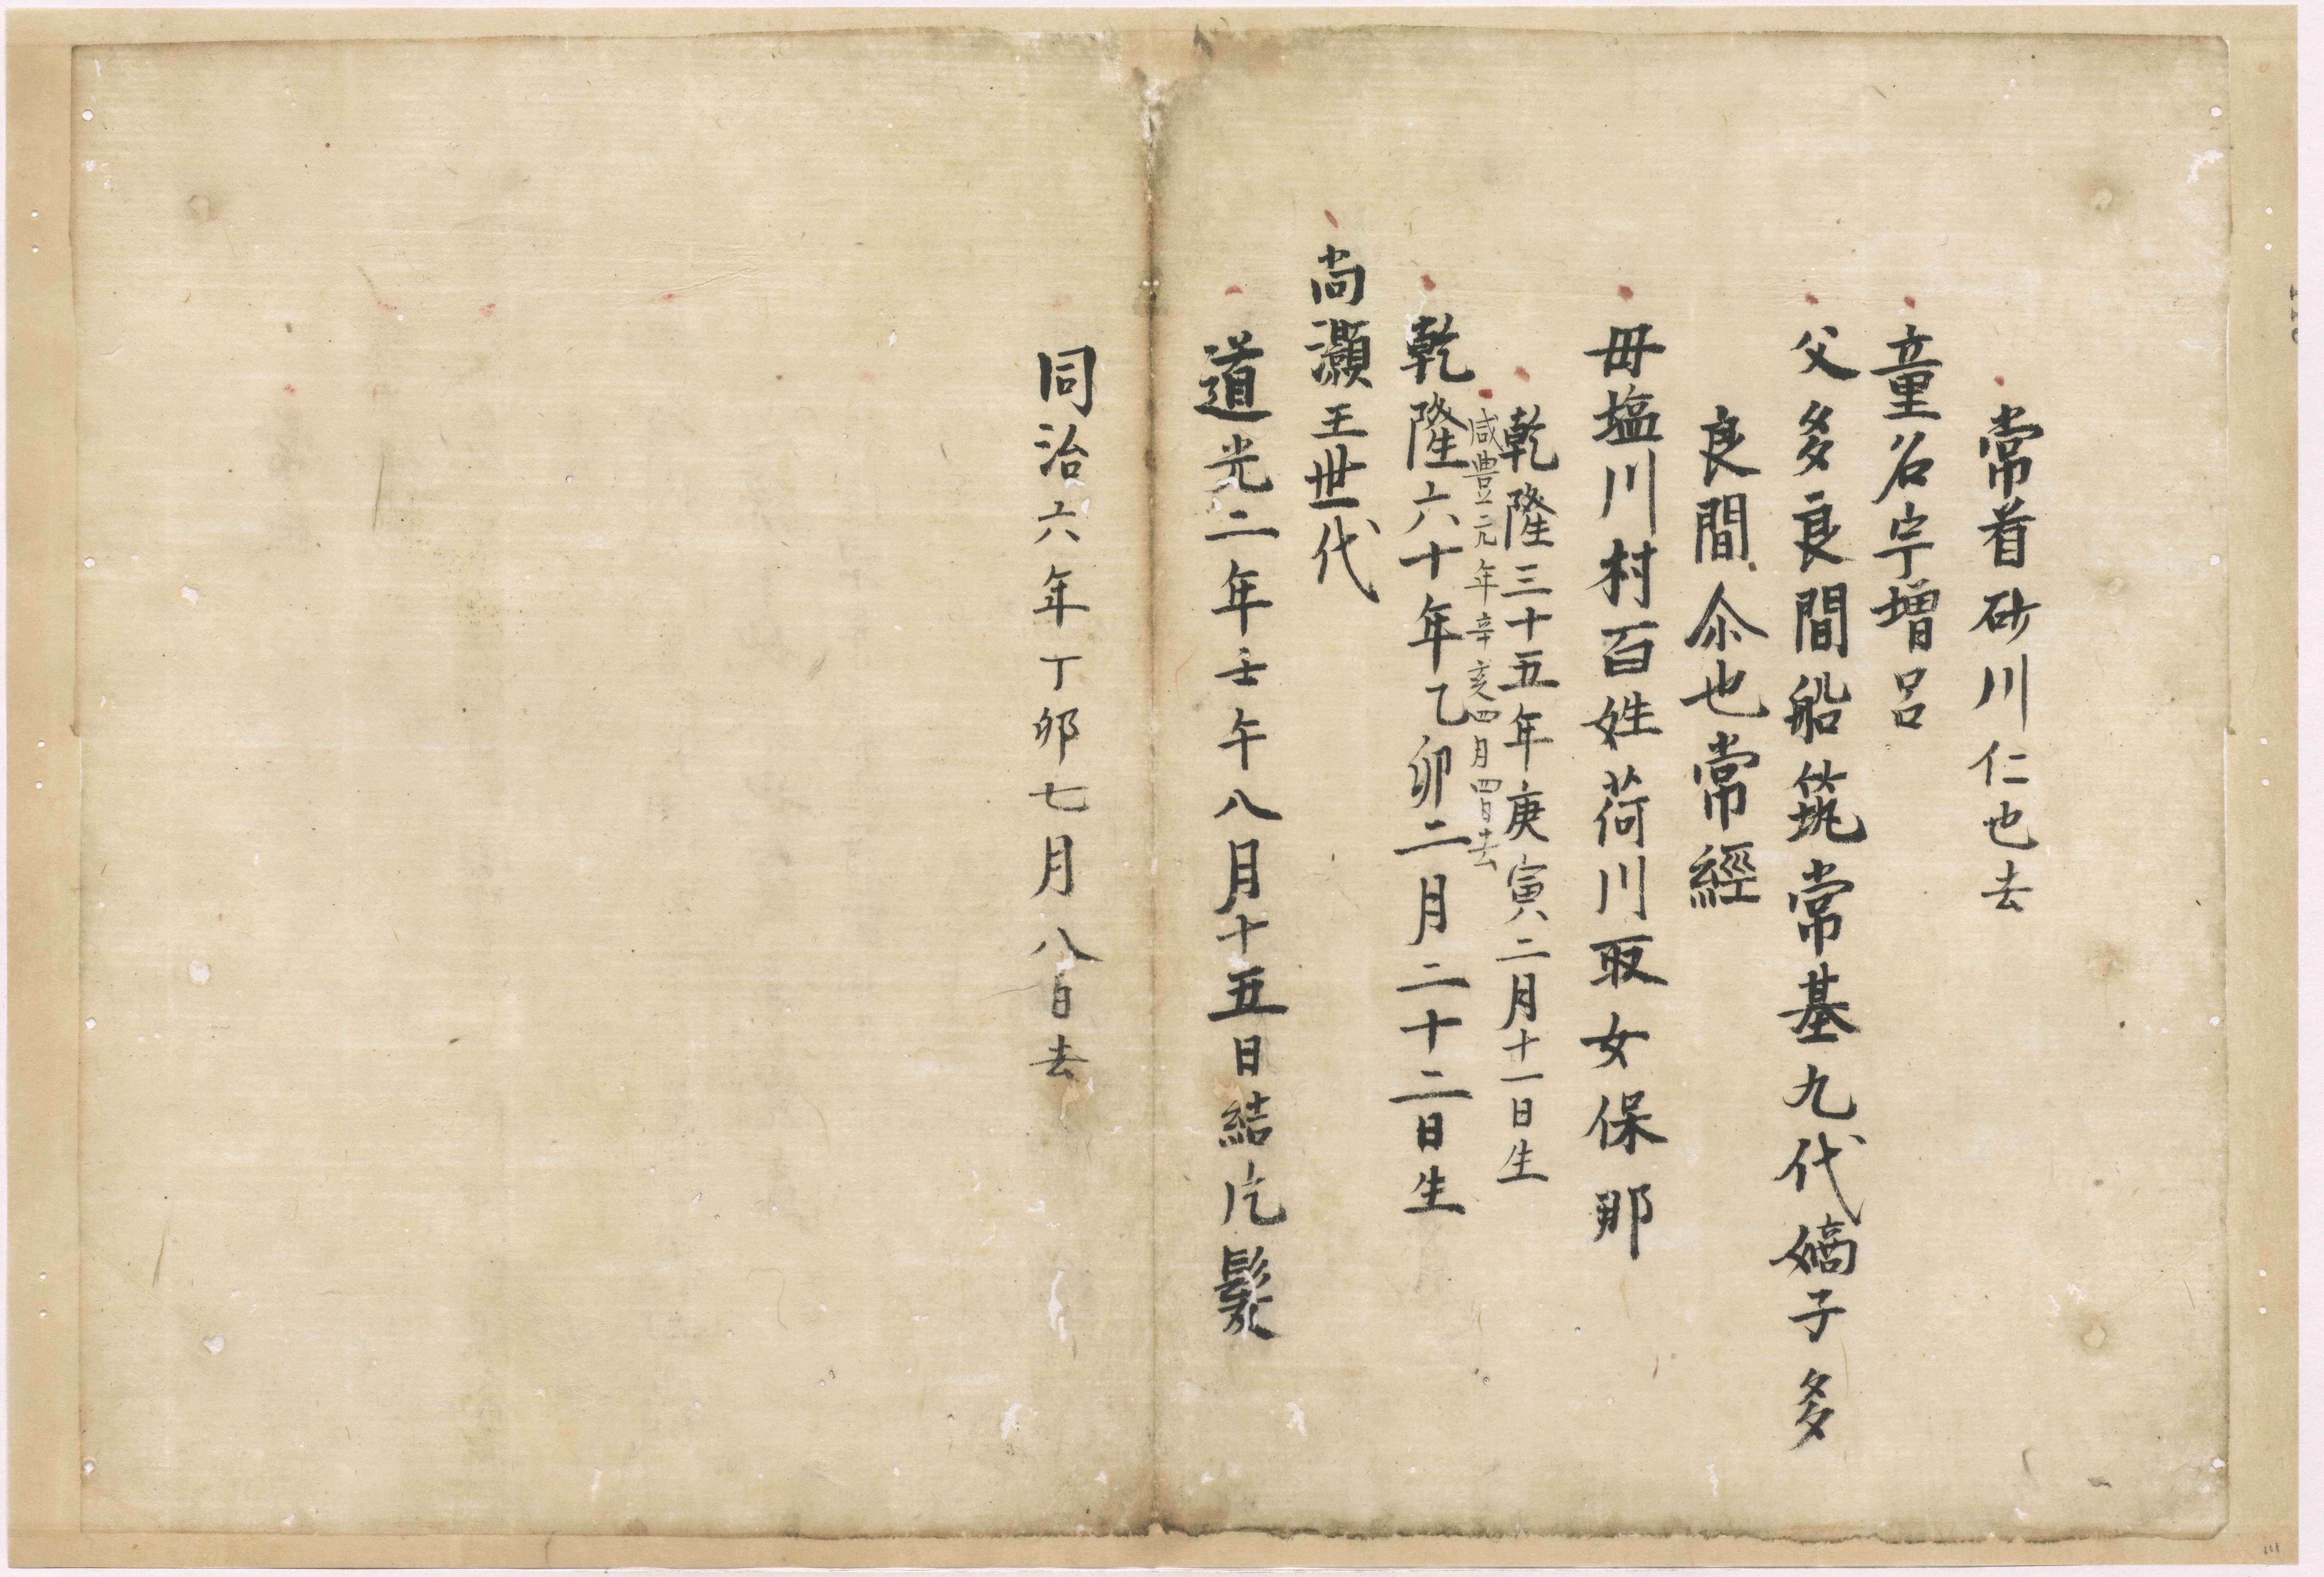 常着砂川仁也去
童名宇増呂
父多良間船筑常基九代嫡子多
良間尒也常經
毋塩川村百姓荷川取女保那
乾隆三十五年庚寅二月十一日生
咸豊元年辛亥四月四日去
乾隆六十年乙卯二月二十二日生
尚灝王世代
道光二年壬午八月十五日結片髪
同治六年丁卯七月八日去